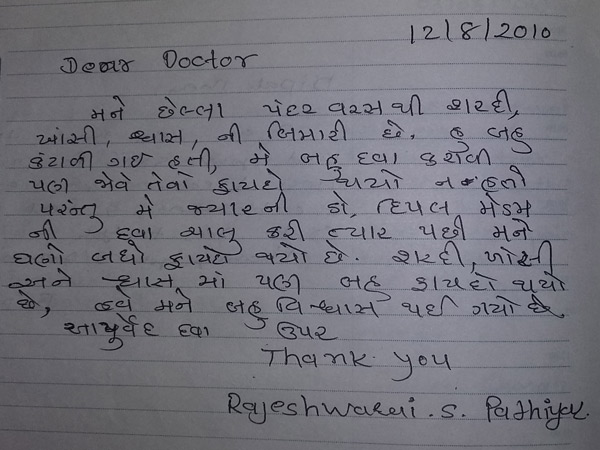 12/8/2010
Dear Doctor
મને છેલ્લા પંદર વરસ થી શરદી,
ખાંસી, શ્વાસ, ની બિમારી છે. હુ બહુ
કંટાળી ગઈ હતી, મે બહુ દવા કરાવી
પણ જેવે તેવો ફાયદો થયો ન હતો
પરંતુ મે જ્યારની ડો, દિપલ મેડમ
ની દવા ચાલુ કરી ત્યાર પછી મને
ઘણો બધો ફાયદો થયો છે. શરદી, ખાંસી
અને શ્વાસ માં પણ બહુ ફાયદો થયો
છે, હવે મને બહુ વિશ્વાસ થઈ ગયો છે,
આયુર્વેદ દવા ઉપર
Thank you
Rajeshwari . S. Padhiyar